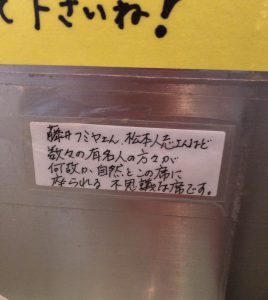 て下さいね!
藤井フミヤさん、松本人志さんなど
数々の有名人の方々が
何故か、自然とこの席に
座られる 不思議な席です。